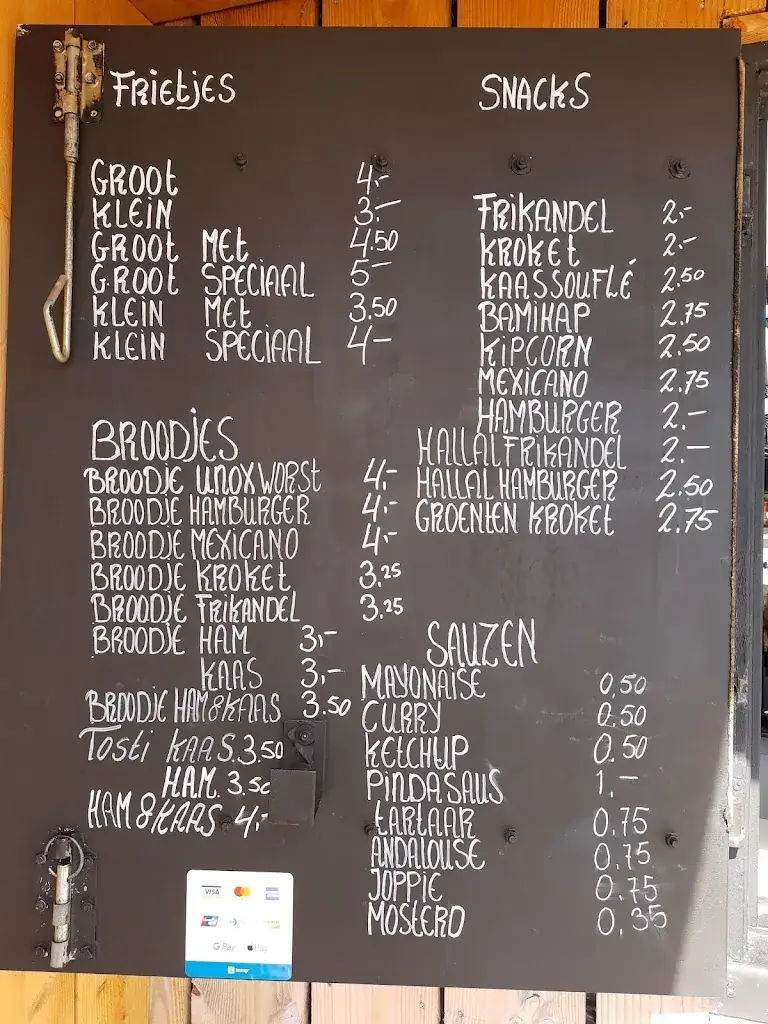 Frietjes
GROOT 4,-
KLEIN 3,-
GROOT MET 4.50
GROOT SPECIAAL 5-
KLEIN MET 3.50
KLEIN SPECIAAL 4-
BROODJES
BROODJE UNOX WORST 4,-
BROODJE HAMBURGER 4,-
BROODJE MEXICANO 4,-
BROODJE KROKET 3.25
BROODJE FRIKANDEL 3.25
BROODJE HAM 3,-
KAAS 3,-
BROODJE HAM & KAAS 3.50
Tosti KAAS. 3.50
HAM. 3.50
HAM & KAAS 4,-
SNACKS
FRIKANDEL 2,-
KROKET 2,-
KAASSOUFLÉ 2.50
BAMIHAP 2.75
KIPCORN 2.50
MEXICANO 2.75
HAMBURGER 2.-
HALLAL FRIKANDEL 2.-
HALLAL HAMBURGER 2.50
GROENTEN KROKET 2.75
SAUZEN
MAYONAISE 0,50
CURRY 0.50
KETCHUP 0.50
PINDASAUS 1,-
TARTAAR 0.75
ANDALOUSE 0.75
JOPPIE 0.75
MOSTERD 0.35
VISA
G Pay Pay